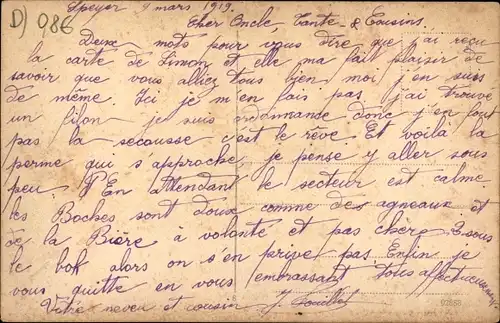 D) 086
Speyer 9 mars 1919.
Cher Oncle, Tante & Cousins.
Deux mots pour vous dire que j'ai reçu
la carte de Simon et elle ma fait plaisir de
savoir que vous alliez tous bien moi j'en suis
de même. Ici je m'en fais pas j'ai trouvé
un filon je suis ordonnance donc j'en fout
pas la secousse c'est le rêve. Et voila la
perme qui s'approche, je pense y aller sous
peu. En Attendant le secteur est calme
les Boches sont doux comme des agneaux et
de la Bière à volonté et pas cher 5 sous
le bok alors on s'en prive pas. Enfin je
vous quitte en vous embrassant tous affectueusement
Votre neveu et cousin J.